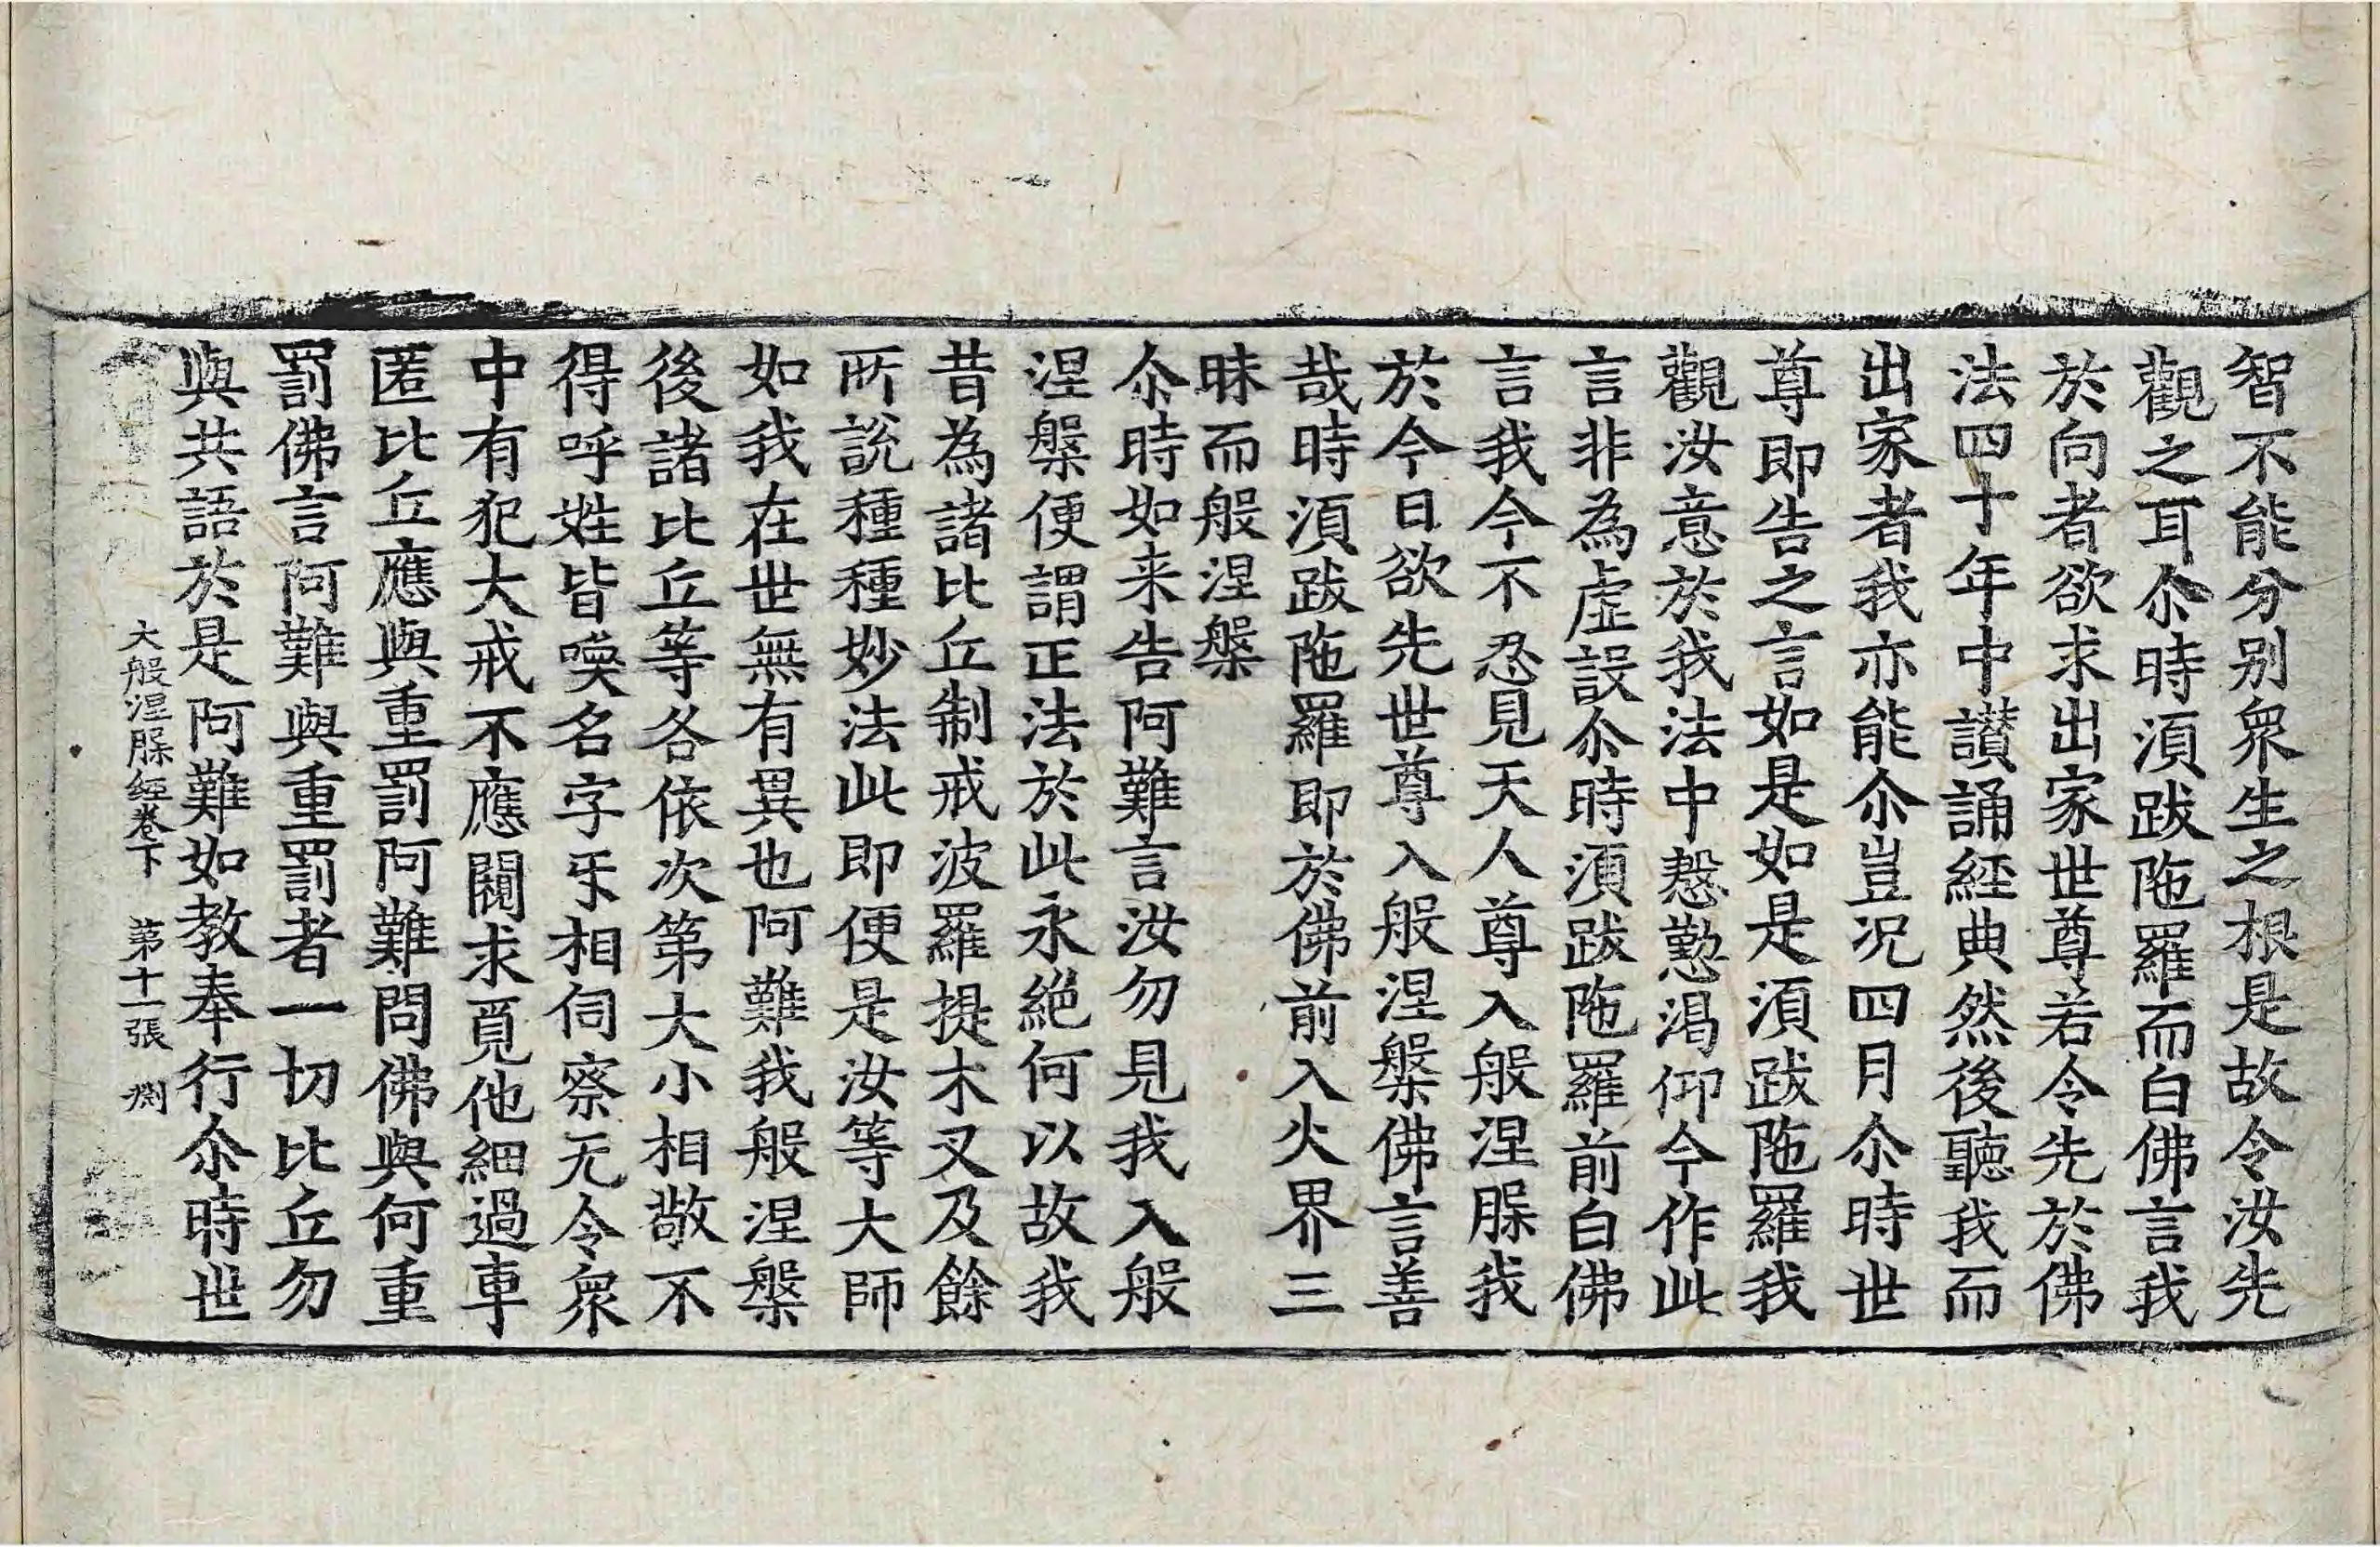 智不能分别衆生之根是故令汝先
觀之耳尒時湏跋陁羅而白佛言我
於向者欲求出家世尊若令先於佛
法四十年中讃誦經典然後聽我而
出家者我亦能尒豈況四月尒時世
尊即告之言如是如是湏跋陁羅我
觀汝意於我法中慇懃渴仰今作此
言非為虛誤尒時湏跋陁羅前白佛
言我今不忍見天人尊入般涅㬳我
於今日欲先世尊入般涅槃佛言善
哉時湏跋陁羅即於佛前入火界三
昧而般涅槃
尒時如来告阿難言汝勿見我入般
涅槃便謂正法於此永絕何以故我
昔為諸比丘制戒波羅提木叉及餘
所說種種妙法此即便是汝等大師
如我在世無有異也阿難我般涅槃
後諸比丘等各依次第大小相敬不
得呼姓皆喚名字㸦相伺察无令衆
中有犯大戒不應闚求覓他細過車
匿比丘應與重罰阿難問佛與何重
罰佛言阿難與重罰者一切比丘勿
與共語於是阿難如教奉行尒時世
大般涅㬳經卷下 第十一張